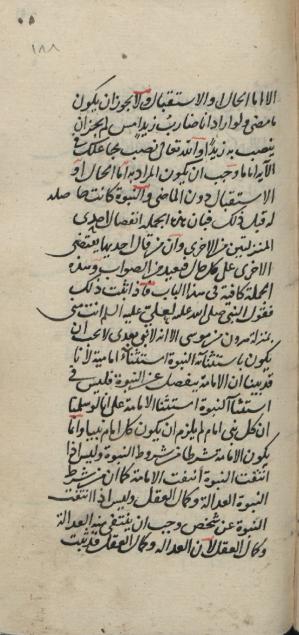 ١٨٨
الا اما الحال او الاستقبال ولا يجوز ان يكون
ما مضى ولو اراد انا ضارب زيد امس لم يجز ان
ينصب به زيدا والله تعالى نصب بجاعلك في
الآية اماما وجب ان يكون المراد به اما الحال او
الاستقبال دون الماضي والنبوة كانت حاصلة
له قبل ذلك فبان بهذه الجملة انفصال احدى
المنزلتين من الاخرى وان من قال احديهما يقتضي
الاخرى على كل حال فبعيد من الصواب وهذه
الجملة كافية في هذا الباب فاذا ثبت ذلك
فقول النبي صلى الله عليه لعلي عليه السلم انت مني
بمنزلة هرون من موسى الا انه لا نبي بعدي لا يجب ان
يكون باستثنائه النبوة استثناء الامامة لانا
قد بينا ان الامامة ينفصل عن النبوة فليس في
استثناء النبوة استثناء الامامة على انا لو سلمنا
ان كل نبي امام لم يلزم ان يكون كل امام نبيا وانما
يكون الامامة شرطا من شروط النبوة وليس اذا
انتفت النبوة انتفت الامامة كما ان من شرط
النبوة العدالة وكمال العقل وليس اذا انتفت
النبوة عن شخص وجب ان ينتفي منه العدالة
وكمال العقل لان العدالة وكمال العقل قد يثبت